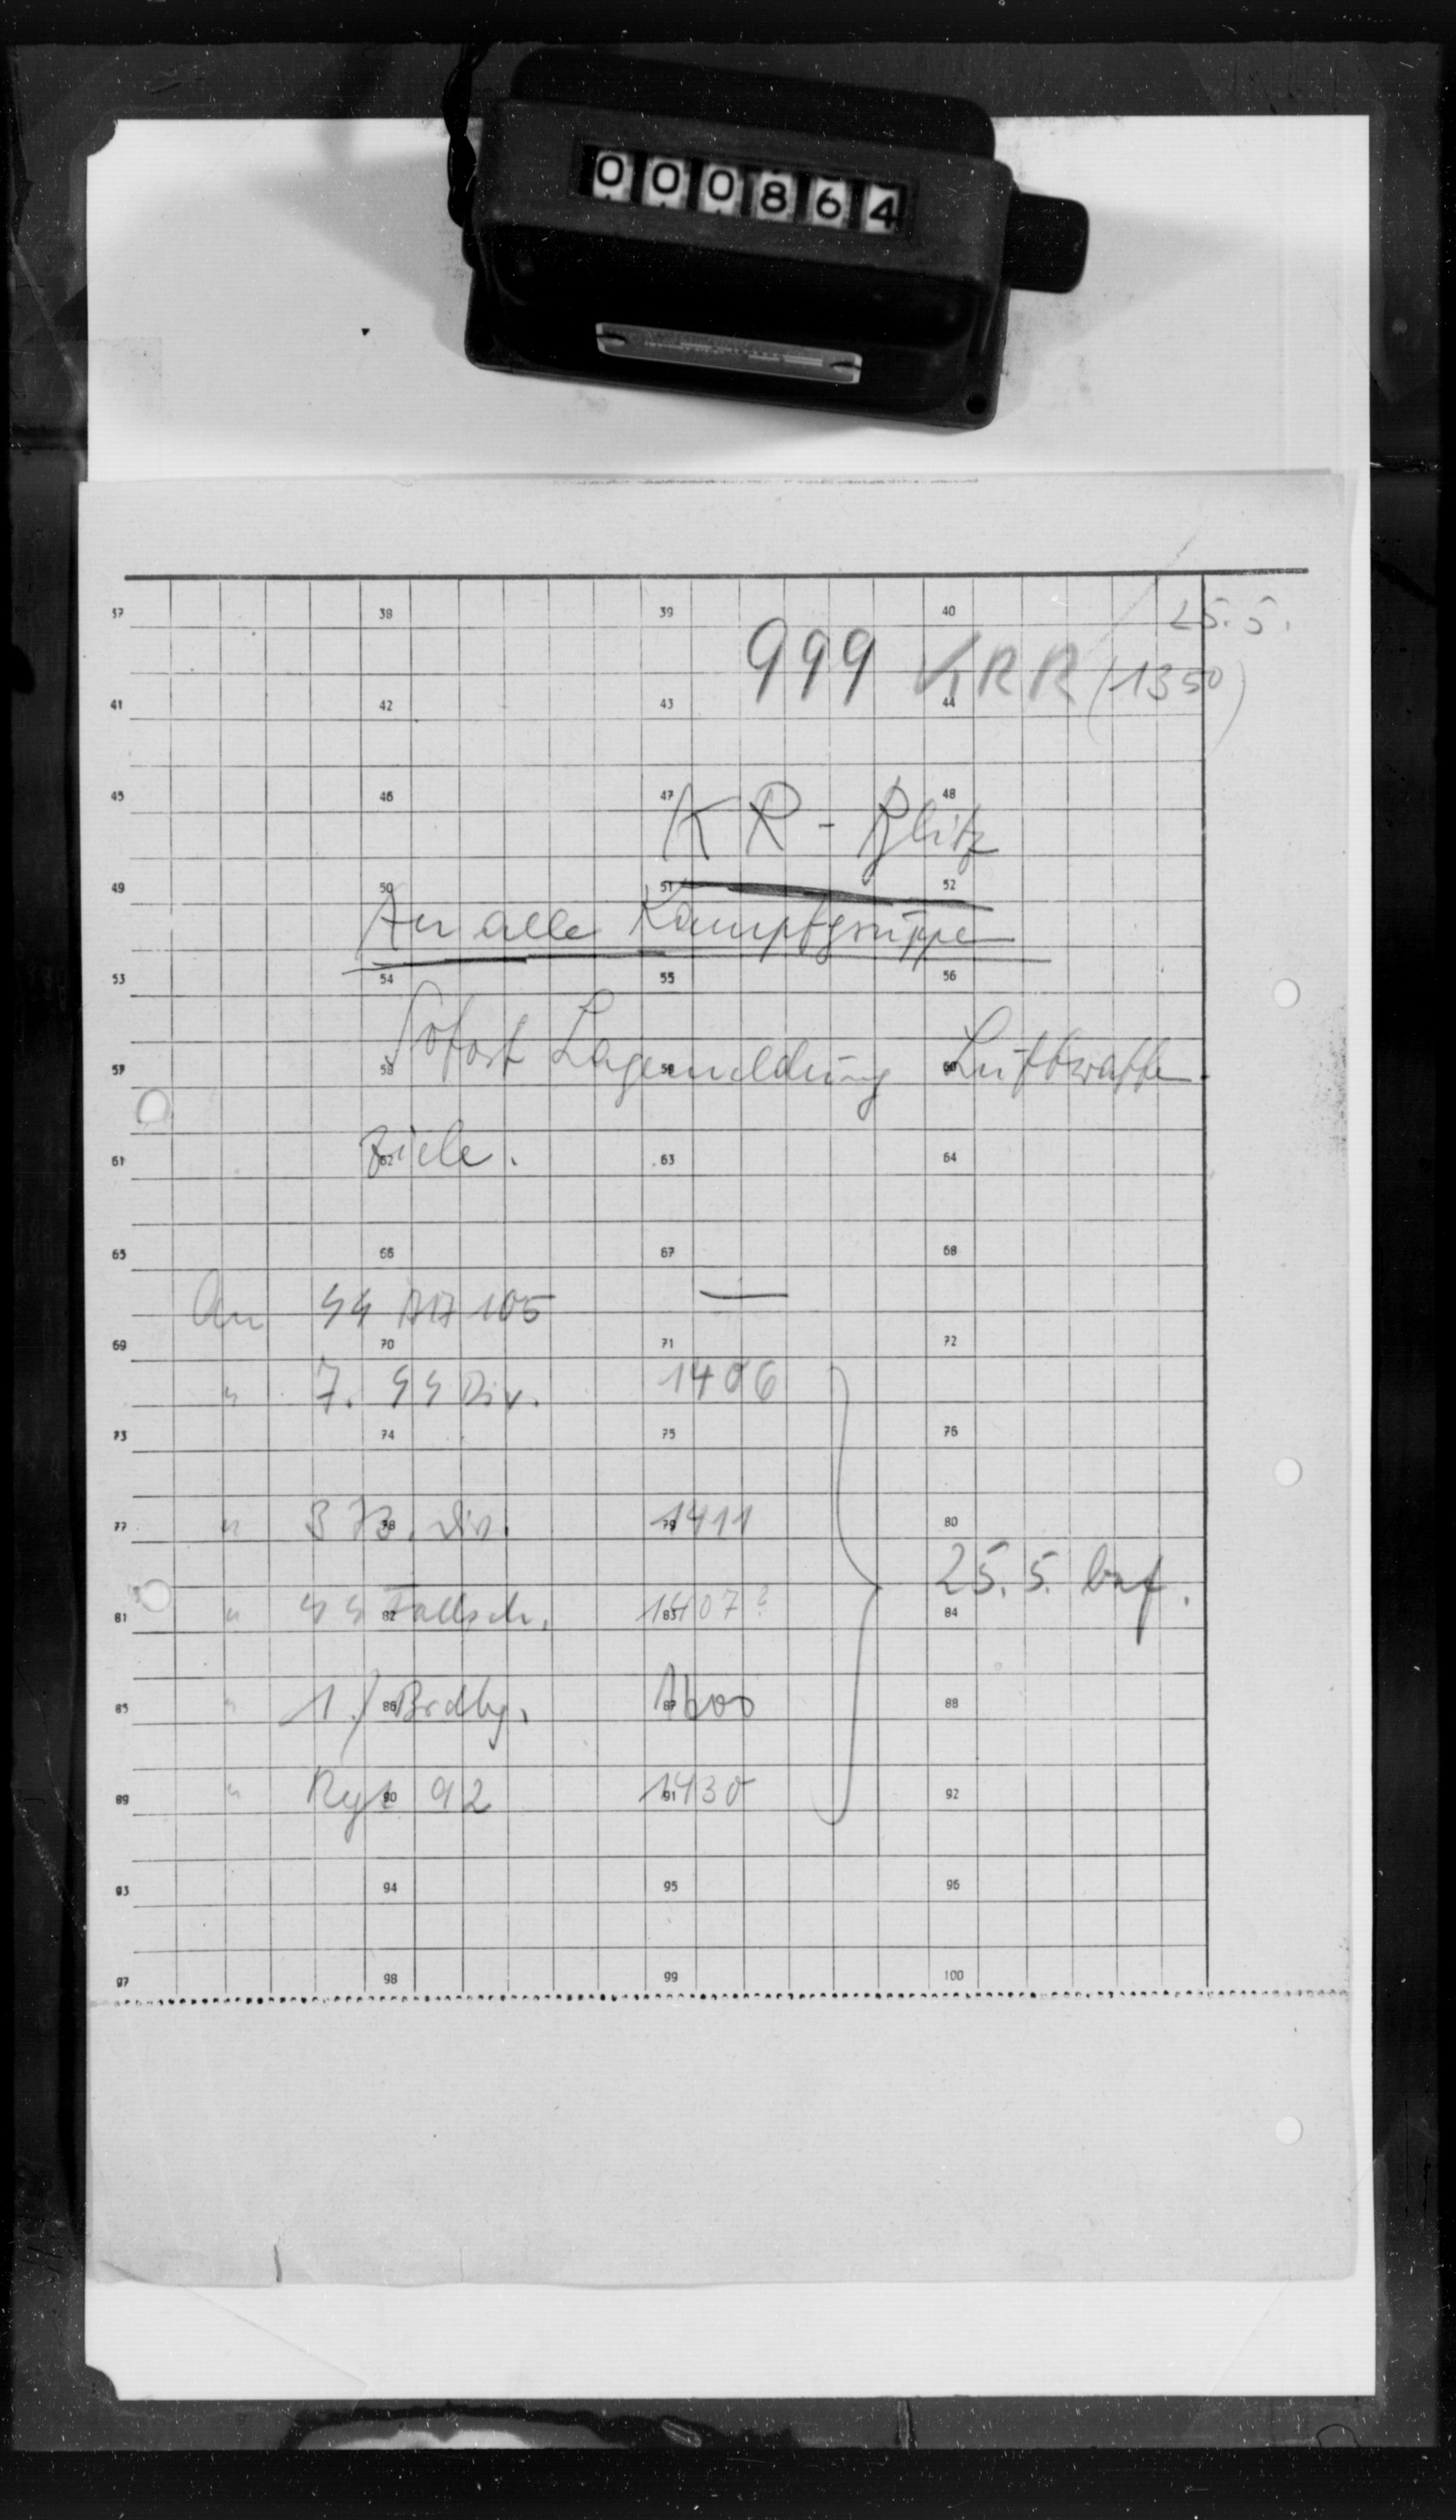 000864
37 38 39 40 25.5.
999 KRR (1350)
41 42 43 44
45 46 47 48
KR - Blitz
49 50 51 52
An alle Kampfgruppen
53 54 55 56
Sofort Lagemeldung Luftwaffen-
57 58 59 60
Ziele.
61 62 63 64
65 66 67 68
An SS 105
69 70 71 72
" 7. SS Div. 1406
73 74 75 76
" 373. Div. 1411
77 78 79 80
25.5. bef.
" SS Fallsch. 1407?
81 82 83 84
" 1./Brdbg. 1400
85 86 87 88
" Rgt 92 1430
89 90 91 92
93 94 95 96
97 98 99 100